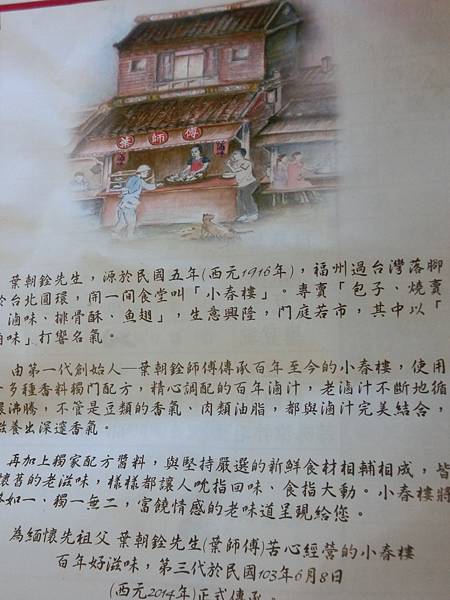 葉師傅
葉朝銓先生，源於民國五年(西元1916年)，福州過台灣落腳
於台北圓環，開一間食堂叫「小春樓」。專賣「包子、燒賣
、滷味、排骨酥、魚翅」，生意興隆，門庭若市，其中以「
滷味」打響名氣。
由第一代創始人—葉朝銓師傅傳承百年至今的小春樓，使用
多種香料獨門配方，精心調配的百年滷汁，老滷汁不斷地循
環沸騰，不管是豆類的香氣、肉類油脂，都與滷汁完美結合，
滋養出深邃香氣。
再加上獨家配方醬料，與堅持嚴選的新鮮食材相輔相成，皆
懷舊的老滋味，樣樣都讓人吮指回味、食指大動。小春樓將
如一、獨一無二，富饒情感的老味道呈現給您。
為緬懷先祖父 葉朝銓先生(葉師傅)苦心經營的小春樓
百年好滋味，第三代於民國103年6月8日
(西元2014年)正式傳承。